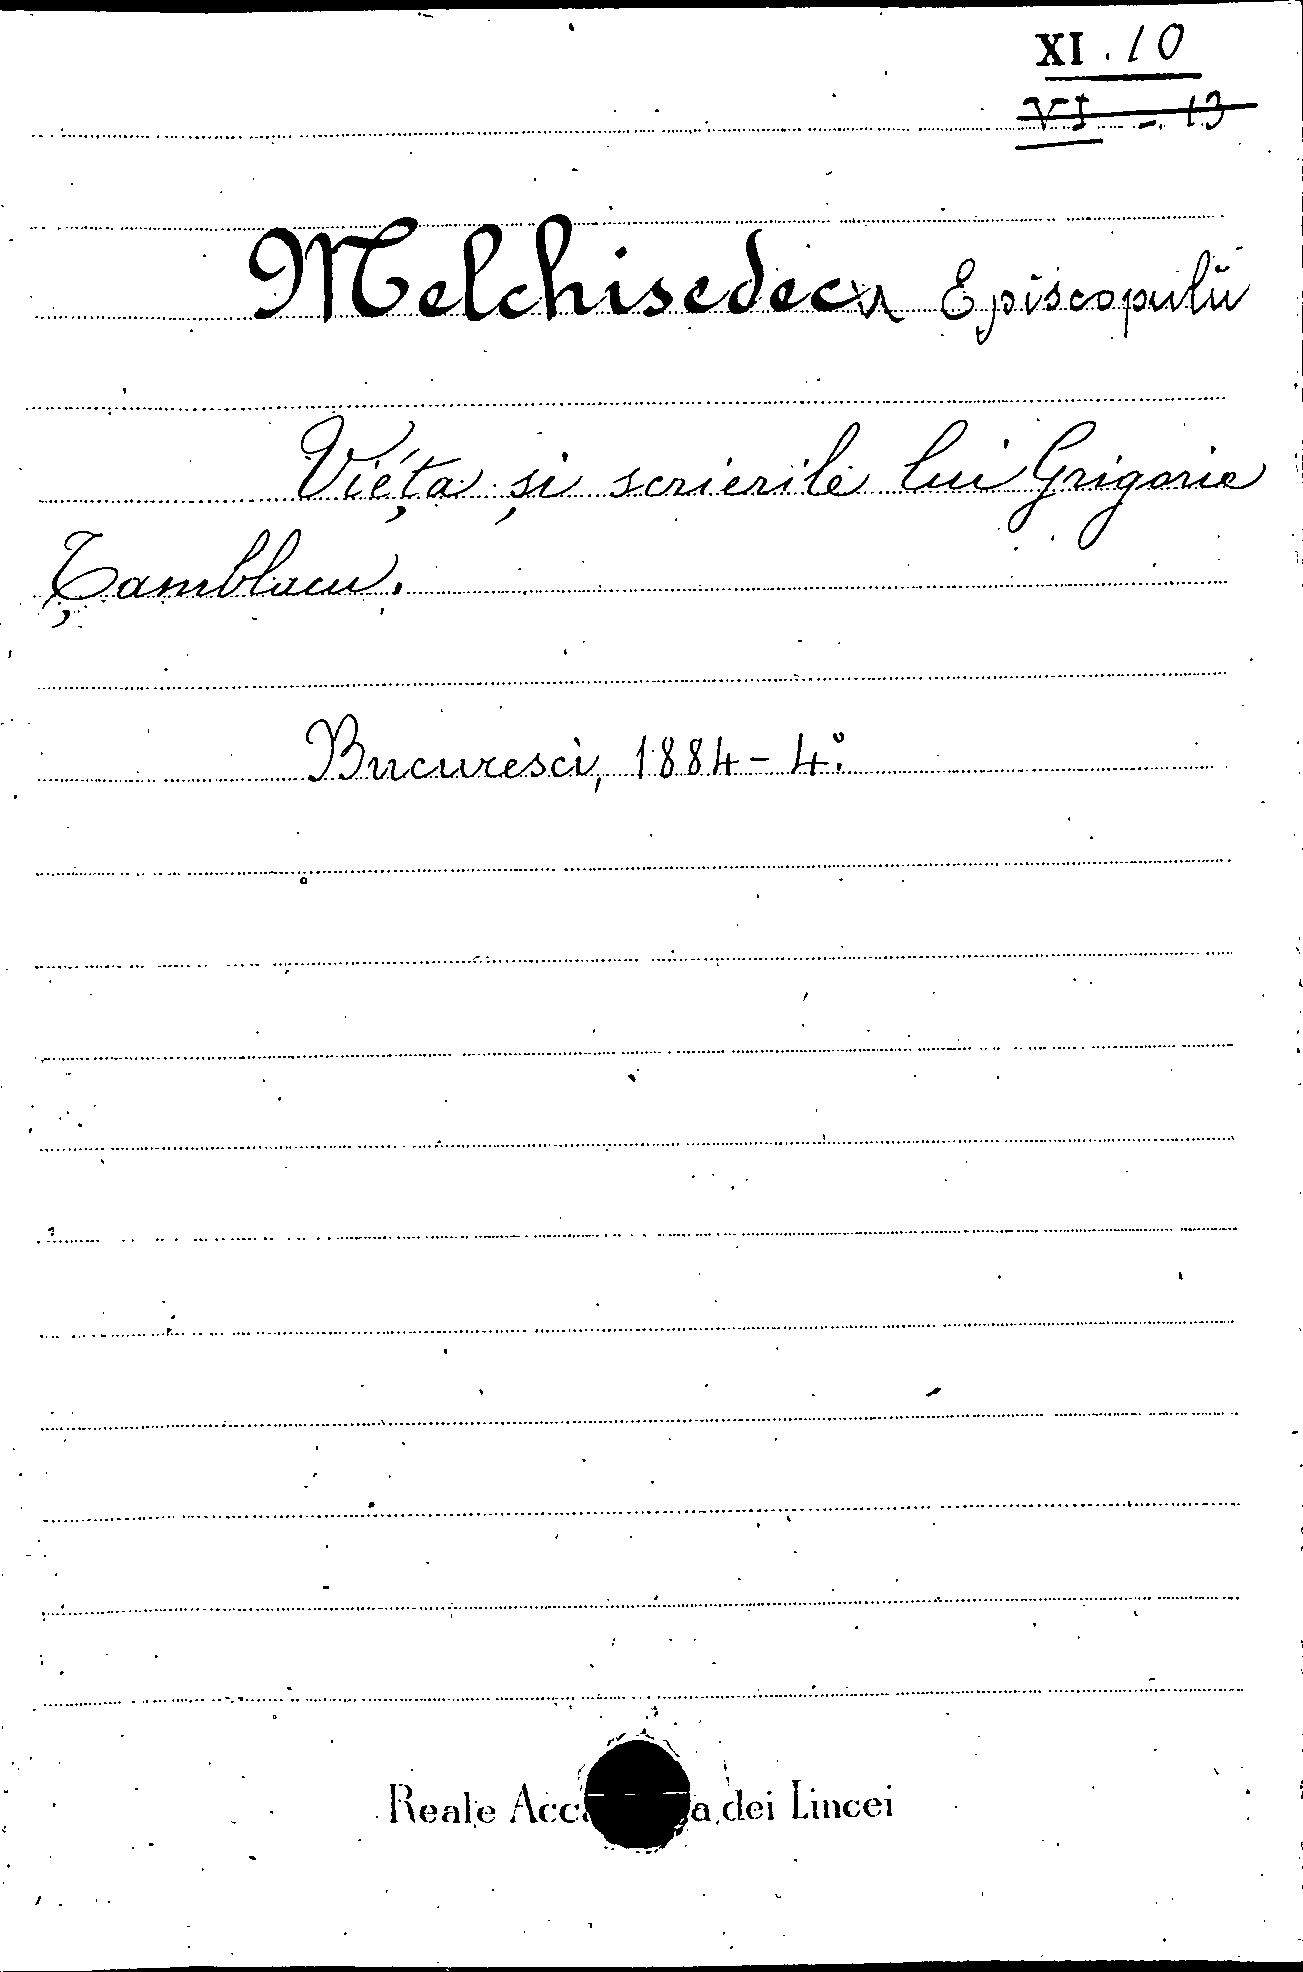 XI . 10
VI - 13
Melchisedecu Episcopulŭ
Viéța și scrierile lui Grigorie
Țamblacu.
Bucuresci, 1884 - 4.°
Reale dei Lincei